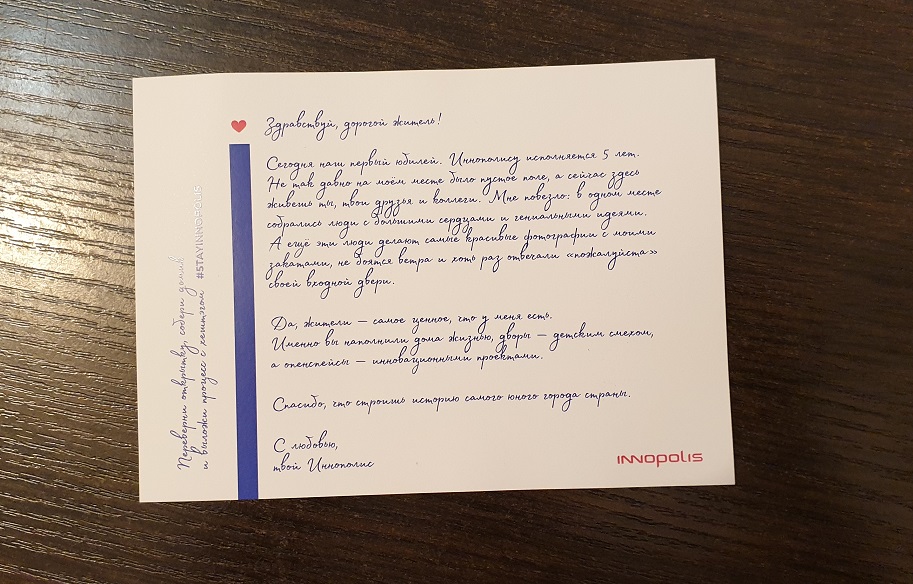 Здравствуй, дорогой житель!
Сегодня наш первый юбилей. Иннополису исполняется 5 лет.
Не так давно на моём месте было пустое поле, а сейчас здесь
живешь ты, твои друзья и коллеги. Мне повезло: в одном месте
собрались люди с большими сердцами и гениальными идеями.
А ещё эти люди делают самые красивые фотографии с моими
закатами, не боятся ветра и хоть раз отвечали «пожалуйста»
своей входной двери.
Да, жители — самое ценное, что у меня есть.
Именно вы наполнили дома жизнью, дворы — детским смехом,
а опенспейсы — инновационными проектами.
Спасибо, что строишь историю самого юного города страны.
С любовью,
твой Иннополис
INNOPOLIS
Переверни открытку, собери домик
и выложи процесс с хештэгом #5TAYINNOPOLIS